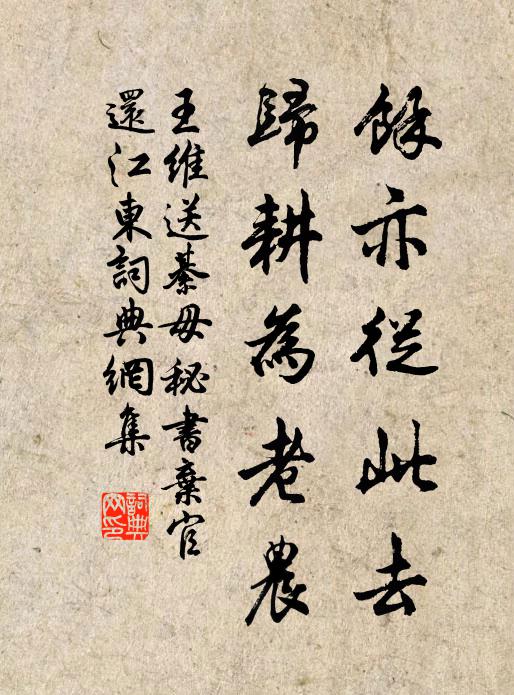 餘亦從此去
歸耕為老農
王維送綦毋秘書棄官
還江東詞典網集
詞典
网印